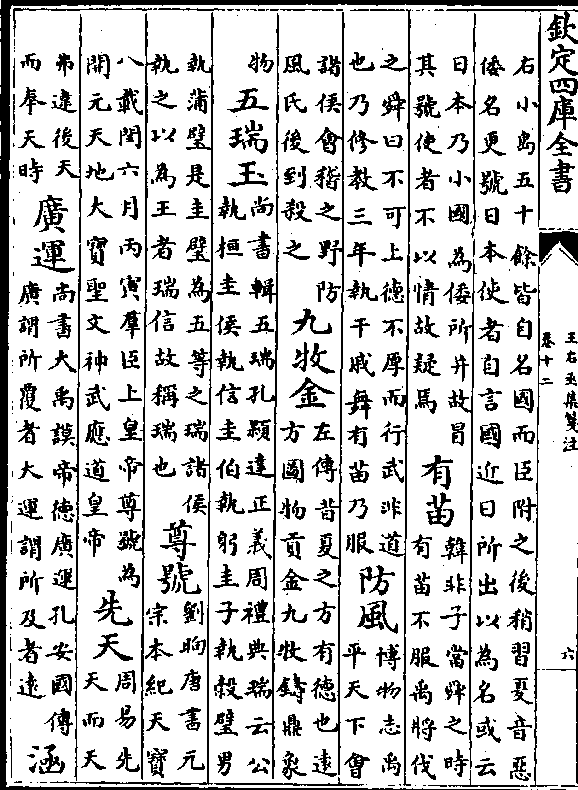 欽定四庫全書
王右丞集箋注
卷十二
六
右小島五十餘皆自名國而臣附之後稍習夏音惡
倭名更號日本使者自言國近日所出以為名或云
日本乃小國為倭所并故冒
其號使者不以情故疑焉
有苗
韓非子當舜之時
有苗不服禹將伐
之舜曰不可上德不厚而行武非道
也乃修教三年執干戚舞有苗乃服
防風
博物志禹
平天下會
諸侯會稽之野防
風氏後到殺之
九牧金
左傳昔夏之方有德也遠
方圖物貢金九牧鑄鼎象
物
五瑞玉
尚書輯五瑞孔穎達正義周禮典瑞云公
執桓圭侯執信圭伯執躬圭子執穀璧男
執蒲璧是圭璧為五等之瑞諸侯
執之以為王者瑞信故稱瑞也
尊號
劉昫唐書元
宗本紀天寶
八載閏六月丙寅羣臣上皇帝尊號為
開元天地大寶聖文神武應道皇帝
先天
周易先
天而天
弗違後天
而奉天時
廣運
尚書大禹謨帝德廣運孔安國傳
廣謂所覆者大運謂所及者遠
涵